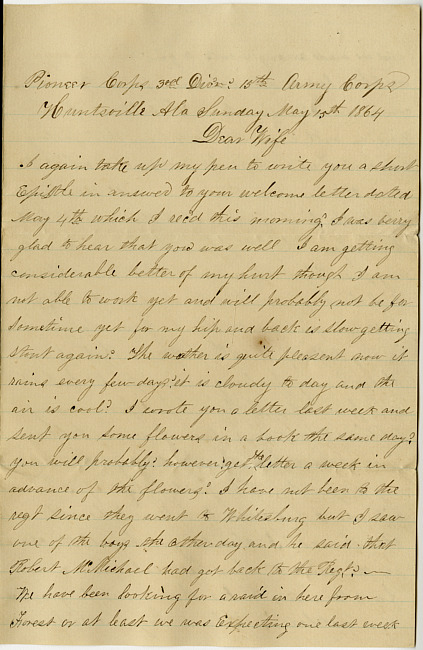 Pioneer Corps 3rd Divn. 15th Army Corps
Huntsville Ala Sunday May 15th 1864
Dear Wife
I again take up my pen to write you a short
Epistle in answer to your welcome letter dated
May 4th which I recd this morning. I was verry
glad to hear that you was well I am getting
considerable better of my hurt though I am
not able to work yet and will probably not be for
sometime yet for my hip and back is slow getting
stout again. The wether is quite pleasent now it
rains every few days. it is cloudy to day and the
air is cool. I wrote you a letter last week and
sent you some flowers in a book the same day.
you will probably however get the letter a week in
advance of the flowers. I have not been to the
regt since they went to Whitesburg but I saw
one of the boys the other day and he said that
Robert McMichael had got back to the Regt.
We have been looking for a raid in here from
Forest or at least we was Expecting one last week